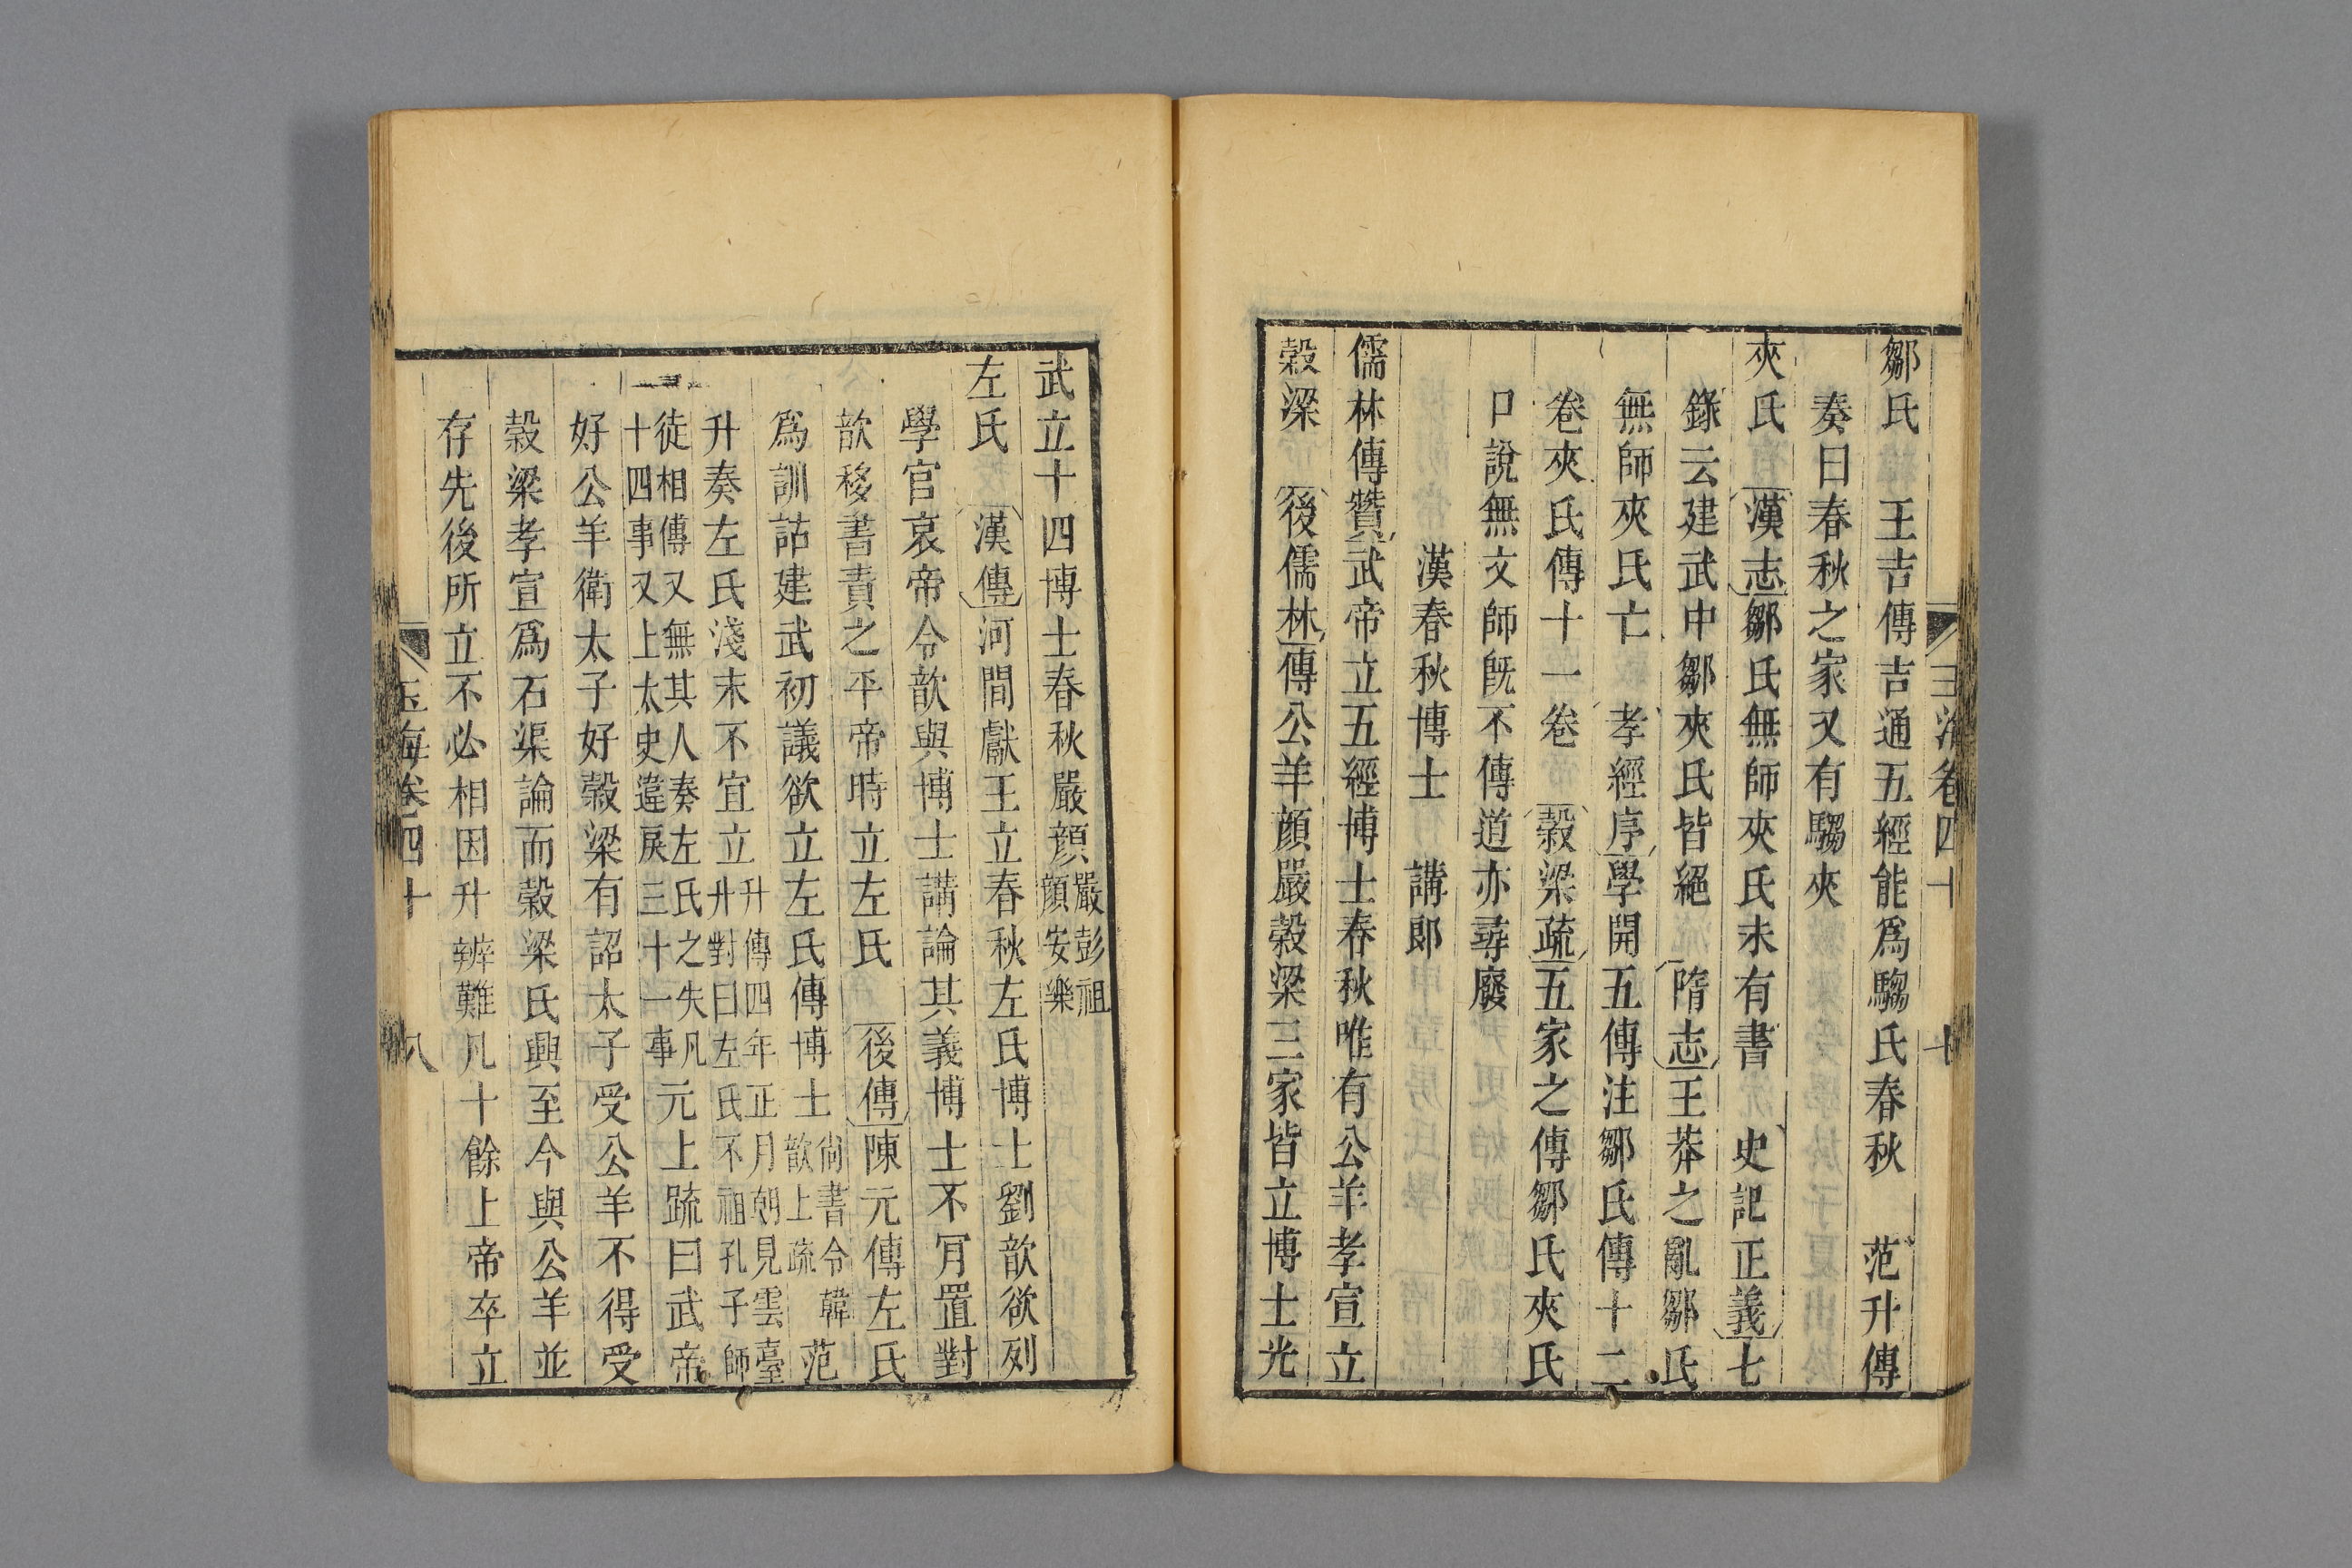 鄒氏 王吉傳吉通五經能爲騶氏春秋 范升傳
奏曰春秋之家又有騶夾
夾氏 漢志鄒氏無師夾氏未有書 史記正義七
錄云建武中鄒夾氏皆絕 隋志王莽之亂鄒氏
無師夾氏亡 孝經序學開五傳注鄒氏傳十二
卷夾氏傳十一卷 榖梁疏五家之傳鄒氏夾氏
口說無文師旣不傳道亦尋廢
漢春秋博士 講郎
儒林傳贊武帝立五經博士春秋唯有公羊孝宣立
榖梁 後儒林傳公羊顏嚴榖梁三家皆立博士光
武立十四博士春秋嚴顏嚴彭祖
顏安樂
左氏 漢傳河間獻王立春秋左氏博士劉歆欲列
學官哀帝令歆與博士講論其義博士不肎置對
歆移書責之平帝時立左氏 後傳陳元傳左氏
爲訓詁建武初議欲立左氏傳博士尙書令韓
歆上疏 范
升奏左氏淺末不宜立升傳四年正月朝見雲臺
升對曰左氏不祖孔子師
徒相傳又無其人奏左氏之失凡
十四事又上太史違戾三十一事元上疏曰武帝
好公羊衛太子好榖梁有詔太子受公羊不得受
榖梁孝宣爲石渠論而榖梁氏興至今與公羊並
存先後所立不必相因升辨難凡十餘上帝卒立
玉海卷四十 八